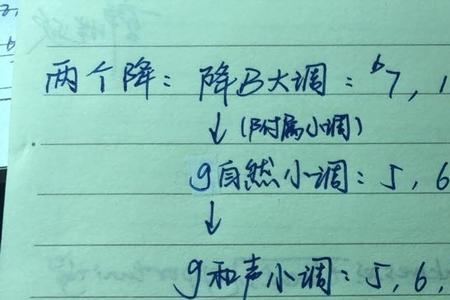 两个降：降B大调：ᵇ7，1
↓（附属小调）
g自然小调：5，6
↓
g和声小调：5，6，